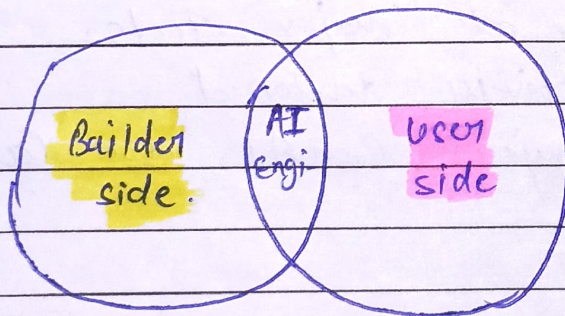 Builder
side.
AI
Engi-
user
side